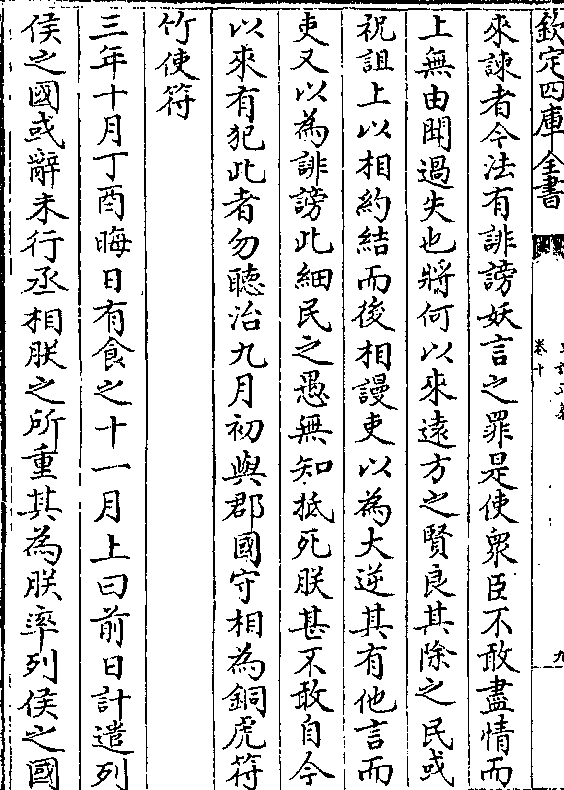 欽定四庫全書
卷十
九
來諫者今法有誹謗妖言之罪是使衆臣不敢盡情而
上無由聞過失也將何以來遠方之賢良其除之民或
祝詛上以相約結而後相謾吏以為大逆其有他言而
吏又以為誹謗此細民之愚無知抵死朕甚不敢自今
以來有犯此者勿聽治九月初與郡國守相為銅虎符
竹使符
三年十月丁酉晦日有食之十一月上曰前日計遣列
侯之國或辭未行丞相朕之所重其為朕率列侯之國